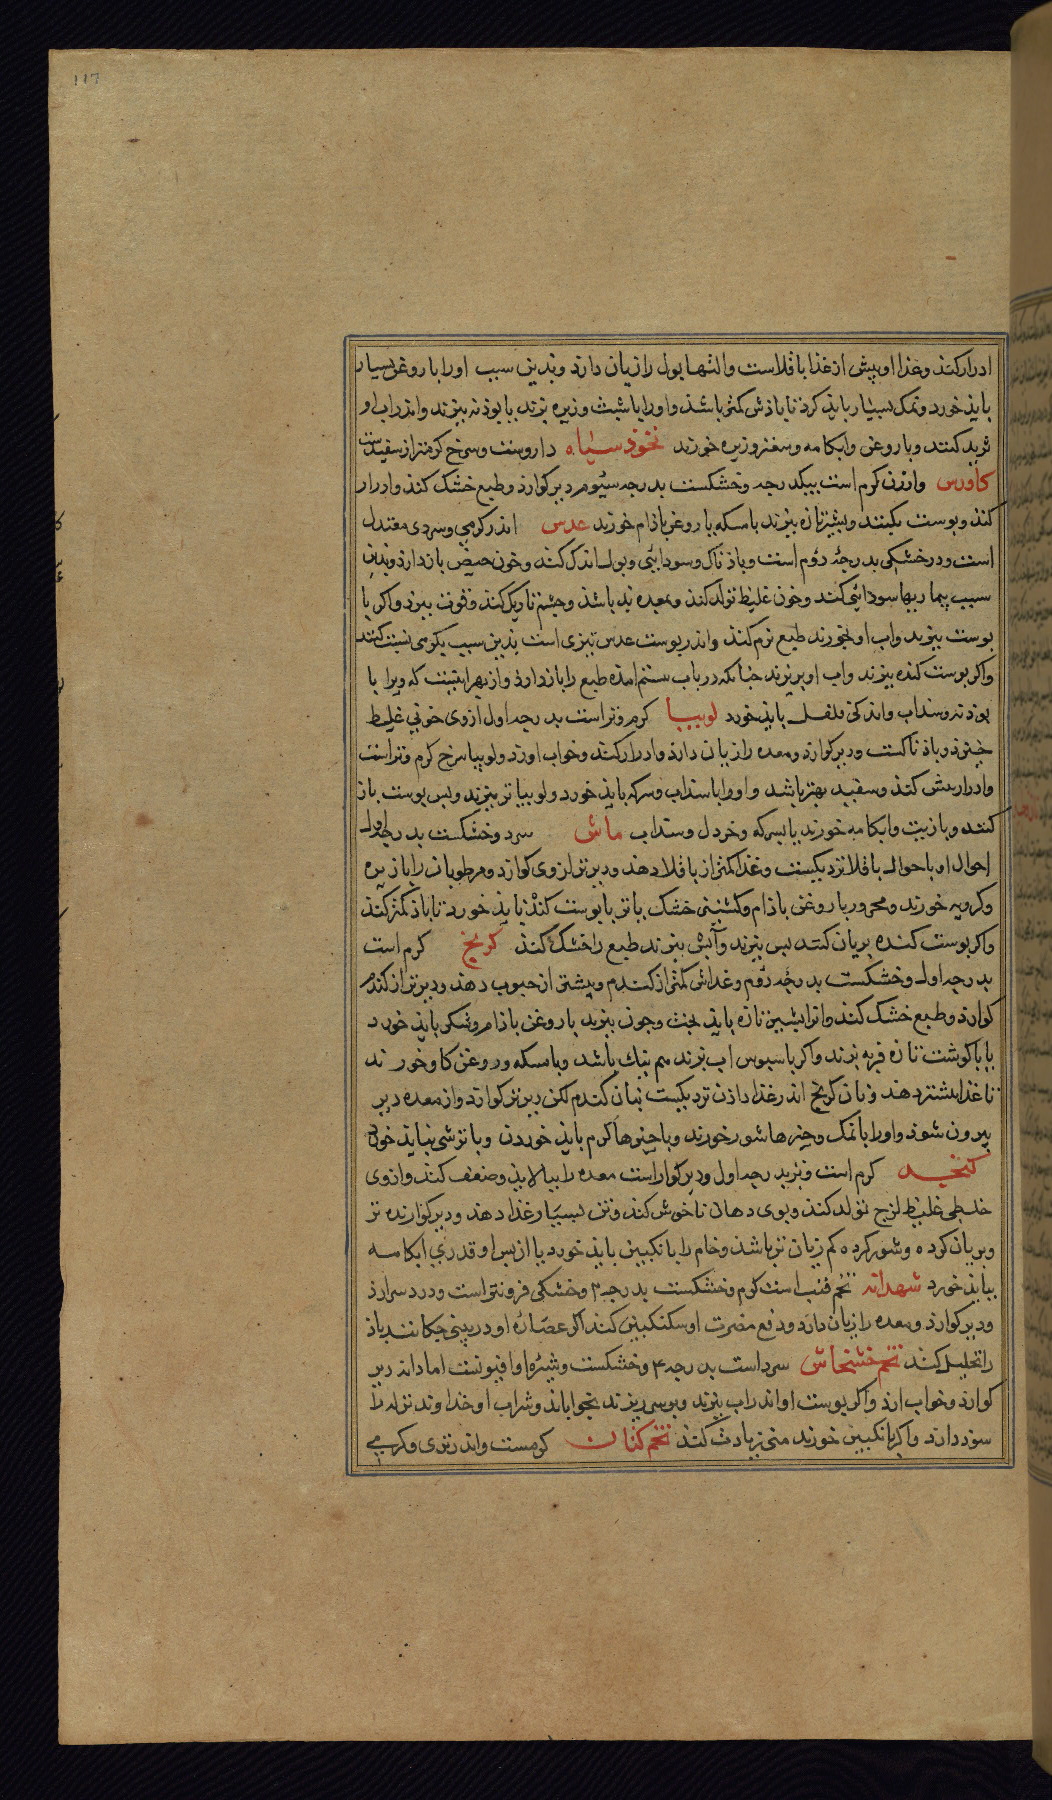 ١١٦
ادرار کند و غذا او بیش از غذا باقلاست و التهابول را زیان دارد و بدین سبب او را با روغن بسیار
بایذ خورد و نمک بسیار بایذ کرد تا باذش کمتر باشذ و او را با شبث و زیره بزند یا بوذنه ببزند و اندراب او
ثرید کنند و با روغن و ابکامه و سعتر و زیره خورند نخوذ سیاه داروست و سرخ کرمتر از سفیدست
کاورس و ارزن کرم است بیکدرجه و خشکست بدرجه سیوم دیر کوارذ و طبع خشک کند و ادرار
کند و بوست بکنند و بشیر تازه ببزند با مسکه یا روغن باذام خورند عدس اندر کرمی و سردی معتدل
است و در خشکی بدرجۀ دوم است و باذناک و سودایی و بول اندک کند و خون حیض بازدارد و بدین
سبب بیماریها سودائی کند و خون غلیظ تولد کند و معده بد باشذ و چشم تاریک کند و قوت ببرد و اکر با
بوست ببزند و اب او بخورند طبع نرم کند و اندر بوست عدس تیزی است بدین سبب بکرمی نسبت کنند
و اکر بوست کنده ببزند و اب او بریزند جنانکه در باب ستم امذه طبع را بازدارد و از بهر اینست که ویرا با
بوذنه و سداب و اندکی فلفل بایذ خورد لوبیا کرم و تر است بدرجه اول از وی خونی غلیظ
خیزد و باذناکست و دیر کوارد و معده را زیان دارد و ادرار کند و خواب اورد و لوبیا سرخ کرم و تر است
و ادرار بیش کند و سفید بهتر باشد و او را با سداب و سرکه بایذ خورد و لوبیا تر ببزند و بس بوست باز
کنند و با زیت و ابکامه خورند یا بسرکه و خردل و سداب ماش سرد و خشکست بدرجه اول
احوال او باحوال باقلا نزدیکست و غذا کمتر از باقلا دهد و دیرتر از وی کوارد و مرطوبان را با زیره
و کرویه خورند و محرور با روغن باذام و کشنیز خشک یا تر با بوست کنذ بایذ خورد تا باذ کمتر کند
و اکر بوست کنده بریان کنند بس ببزند و آبش ببزند طبع را خشک کند کرنج کرم است
بدرجه اول و خشکست بدرجه دوم و غذاش کمتر از کندم و بیشتر از حبوب دهد و دیرتر از کندم
کوارد و طبع خشک کند و انرا بشیر تازه بایذ بخت و جون ببزند با روغن باذام و شکر بایذ خورد
یا با کوشت تازه فربه بزند و اکر با سبوس اب بزند هم نیک باشد و با مسکه و روغن کاو خورند
تا غذا بیشتر دهد و نان کرنج اندر غذا دادن نزدیکست بنان کندم لکن دیرتر کوارد و از معده دیر
بیرون شوذ و او را با نمک و چیزها شور خورند و با چیزها کرم بایذ خوردن و با ترشی نبایذ خورد
کنجد کرم است و تر بدرجه اول و دیر کوار است معده را بیالایذ و ضعف کند و از وی
خلطی غلیظ لزج تولد کند و بوی دهان ناخوش کند و تن بسیار غذا دهد و دیر کوارنده تر
و بریان کرده و شور کرده کم زیان تر باشذ و خام را با نکبین بایذ خورد یا از بس او قدری ابکامه
ببایذ خورد شهدانه تخم قنب است کرم و خشکست بدرجه ٣ و خشکی فزونتر است و درد سر ارذ
و دیر کوارد و معده را زیان دارد و دفع مضرت او سکنکبین کند اکر عصاره او در بینی چکانند باذ
را تحلیل کند تخم خشخاش سرد است بدرجه ٣ و خشکست و شیره او افیونست اما دانه دیر
کوارد و خواب ارد و اکر بوست او اندراب ببزند و بر سر ریزند بخواباند و شراب او خداوند نزله را
سوددارد و اکر با نکبین خورند منی زیادت کند تخم کتان کرمست و اندر تری و کرمی